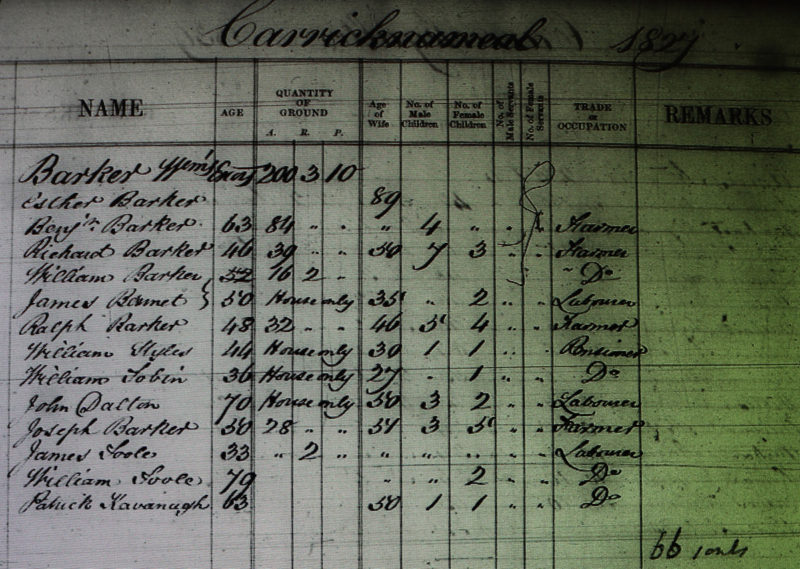 Carricknameal 1827
NAME AGE QUANTITY OF GROUND A. R. P. Age of Wife No. of Male Children No. of Female Children No. of Male Servants No. of Female Servants TRADE or OCCUPATION REMARKS
Barker 200 3 10
Esther Barker 89
Benjn. Barker 63 84 " " " 4 " " Farmer
Richard Barker 46 39 " " 50 7 3 " " Farmer
William Barker 52 16 2 " " Do
James Bonnet 50 House only 35 " 2 " " Labourer
Ralph Barker 48 32 " " 46 5 4 " " Farmer
William Styles 44 House only 30 1 1 " " Pensioner
William Tobin 36 House only 27 " 1 " " Do
John Dalton 70 House only 50 3 2 " " Labourer
Joseph Barker 50 28 " " 57 3 5 " " Farmer
James Toole 33 " 2 " " " " " " Labourer
William Toole 79 " " 2 " " Do
Patrick Kavanagh 63 50 1 1 " " Do
66